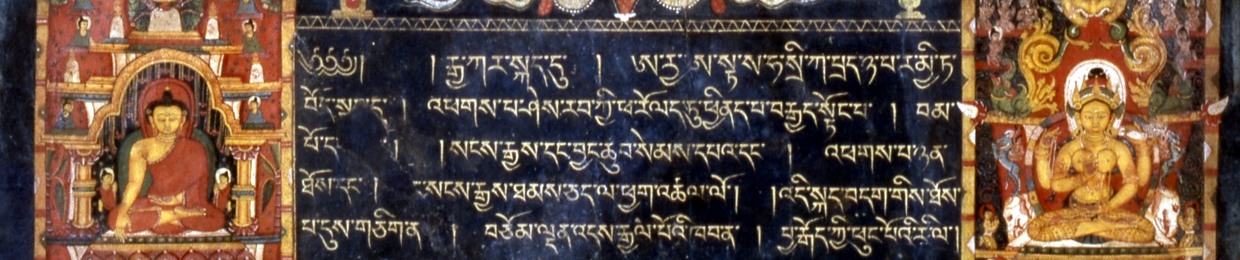 ༄༅༅། །རྒྱ་ཀར་སྐད་དུ་ ། ཨ་རྱ་ ཨ་སྟ་ས་ཧ་སྲི་ཀ་པྲད་ཉ་པ་ར་མྱི་ཏ
འཕགས་པ་ཤེས་རབ་ཀྱི་ཕ་རོལད་ཏུ་ཕྱིནད་པ་བརྒྱད་སྟོང་པ་ ། བམ་
པོ་ད ། །སངས་རྒྱས་དང་བྱང་ཆུབ་སེམས་དཔའ་དང་ ། འཕགས་པ་ཉན་
ཐོས་དང་ ། སངས་རྒྱས་ཐམས་ཅད་ལ་ཕྱག་འཚལ་ལོ། །འདི་སྐད་བདག་གིས་ཐོས་
པ་དུས་གཅིག་ན ། བཅོམ་ལྡན་འདས་རྒྱལ་པོའི་ཁབན་ ། བྱ་རྒོད་ཀྱི་ཕུང་པོའི་རི་ལ་།